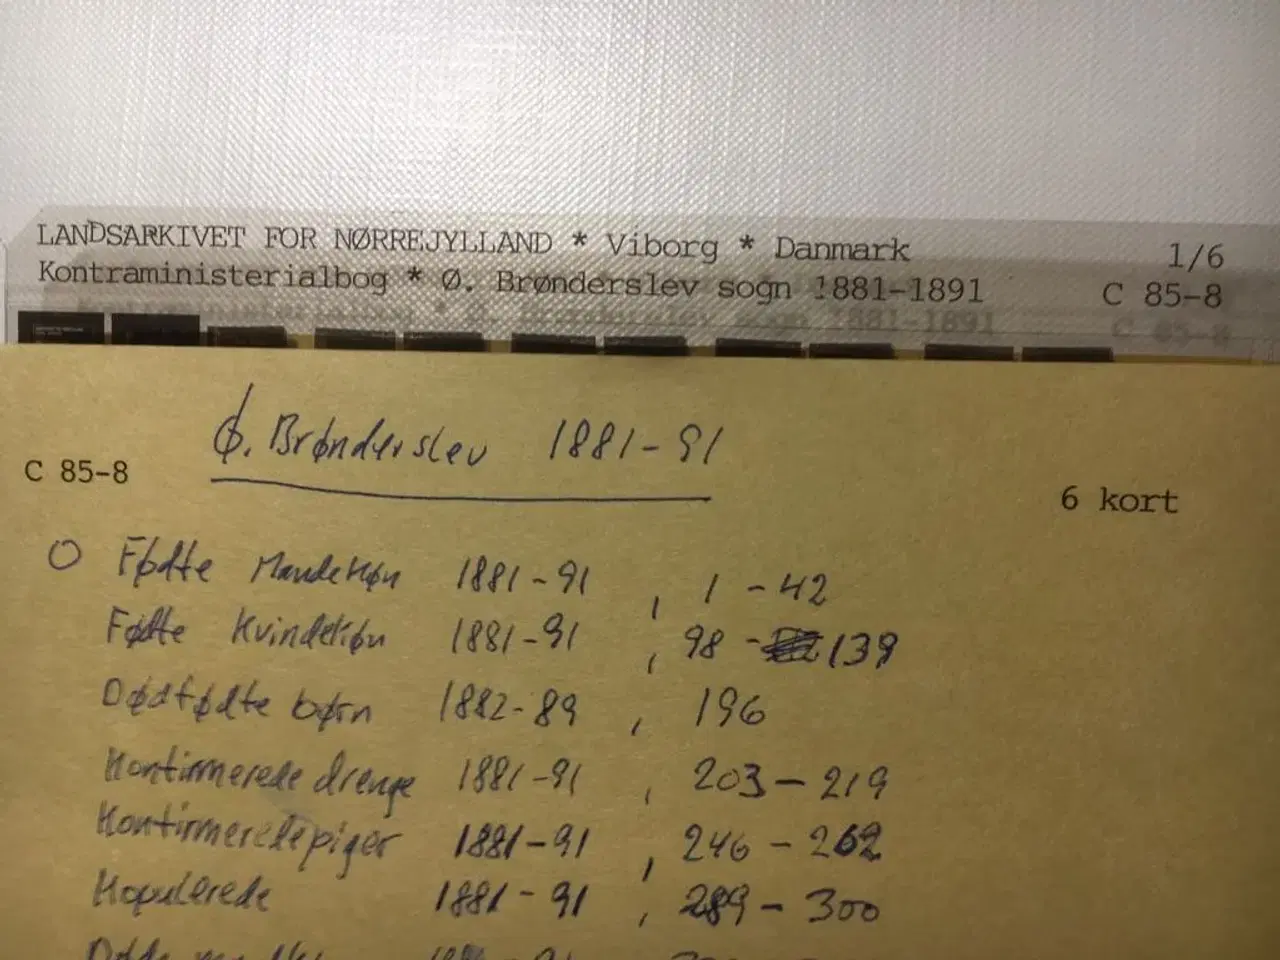 LANDSARKIVET FOR NØRREJYLLAND * Viborg * Danmark 1/6
Kontraministerialbog * Ø. Brønderslev sogn 1881-1891 C 85-8
Ø. Brønderslev 1881-91
C 85-8
6 kort
O Fødte Mandekøn 1881-91, 1-42
Fødte Kvindekøn 1881-91, 98-139
Dødfødte børn 1882-89, 196
Konfirmerede drenge 1881-91, 203-219
Konfirmerede piger 1881-91, 246-262
Kopulerede 1881-91, 289-300